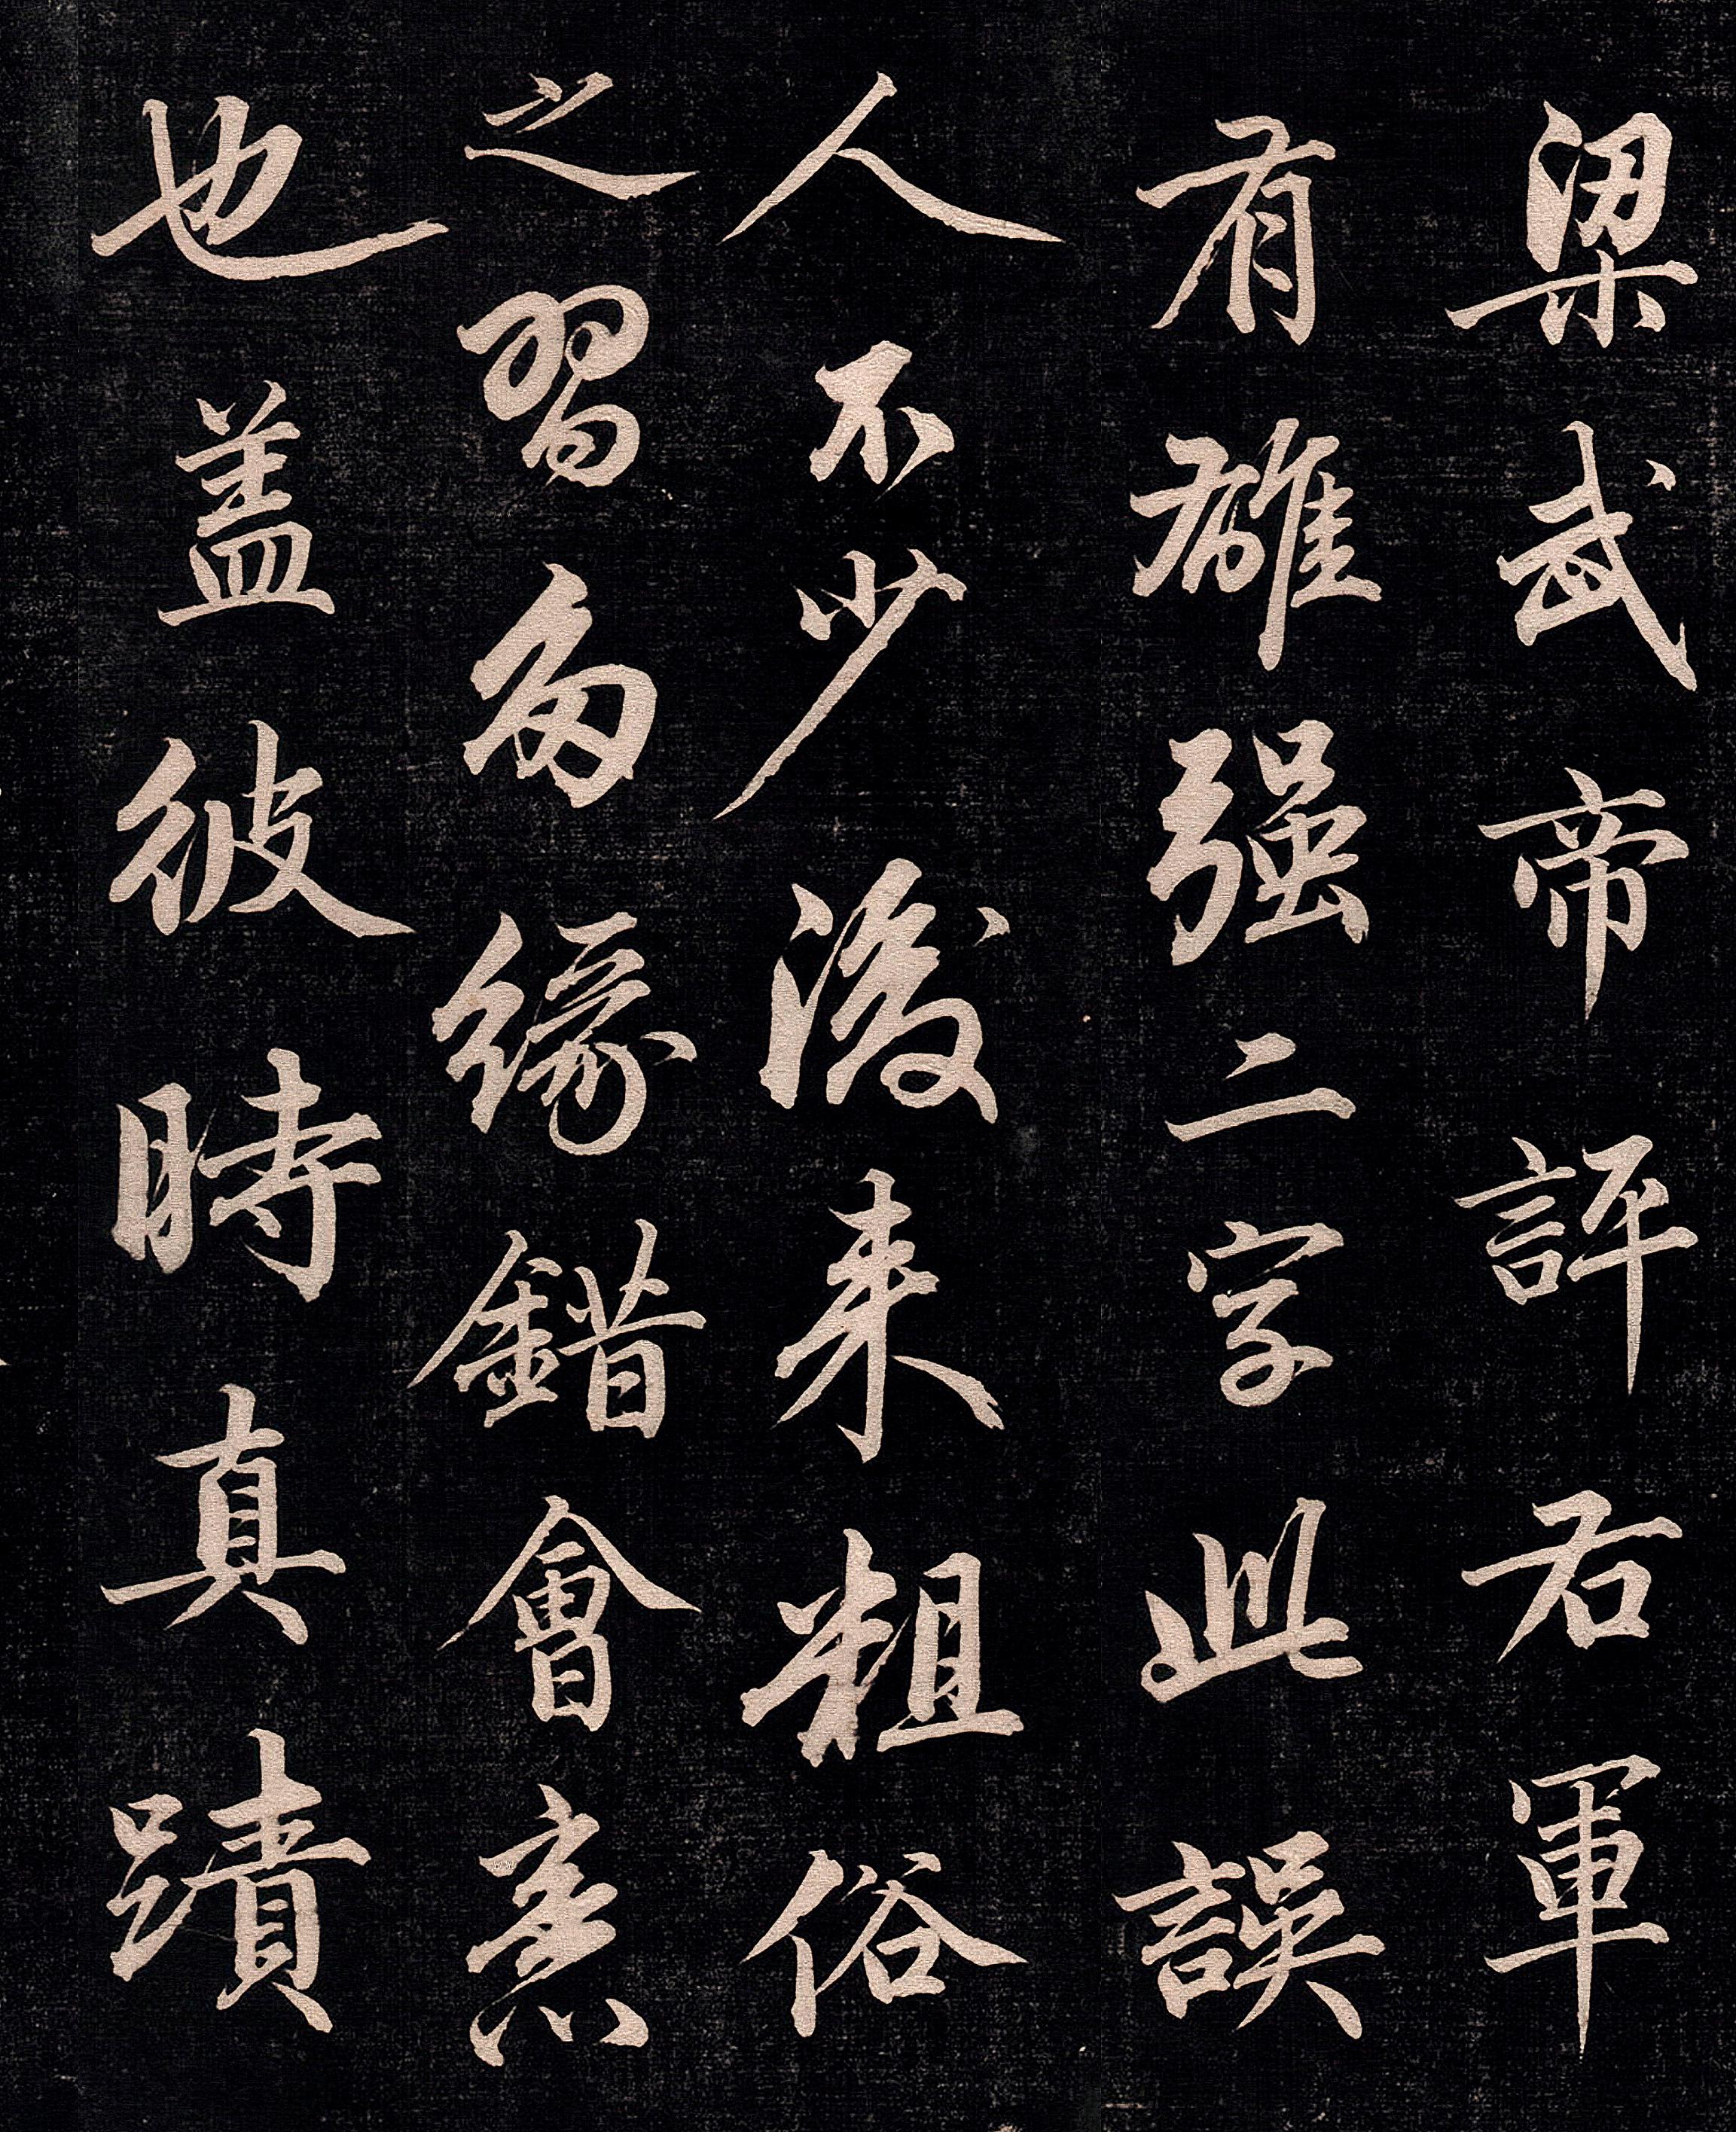 梁武帝評右軍
有雄强二字此誤
人不少後来粗俗
之習多緣錯會意
也盖彼時真蹟